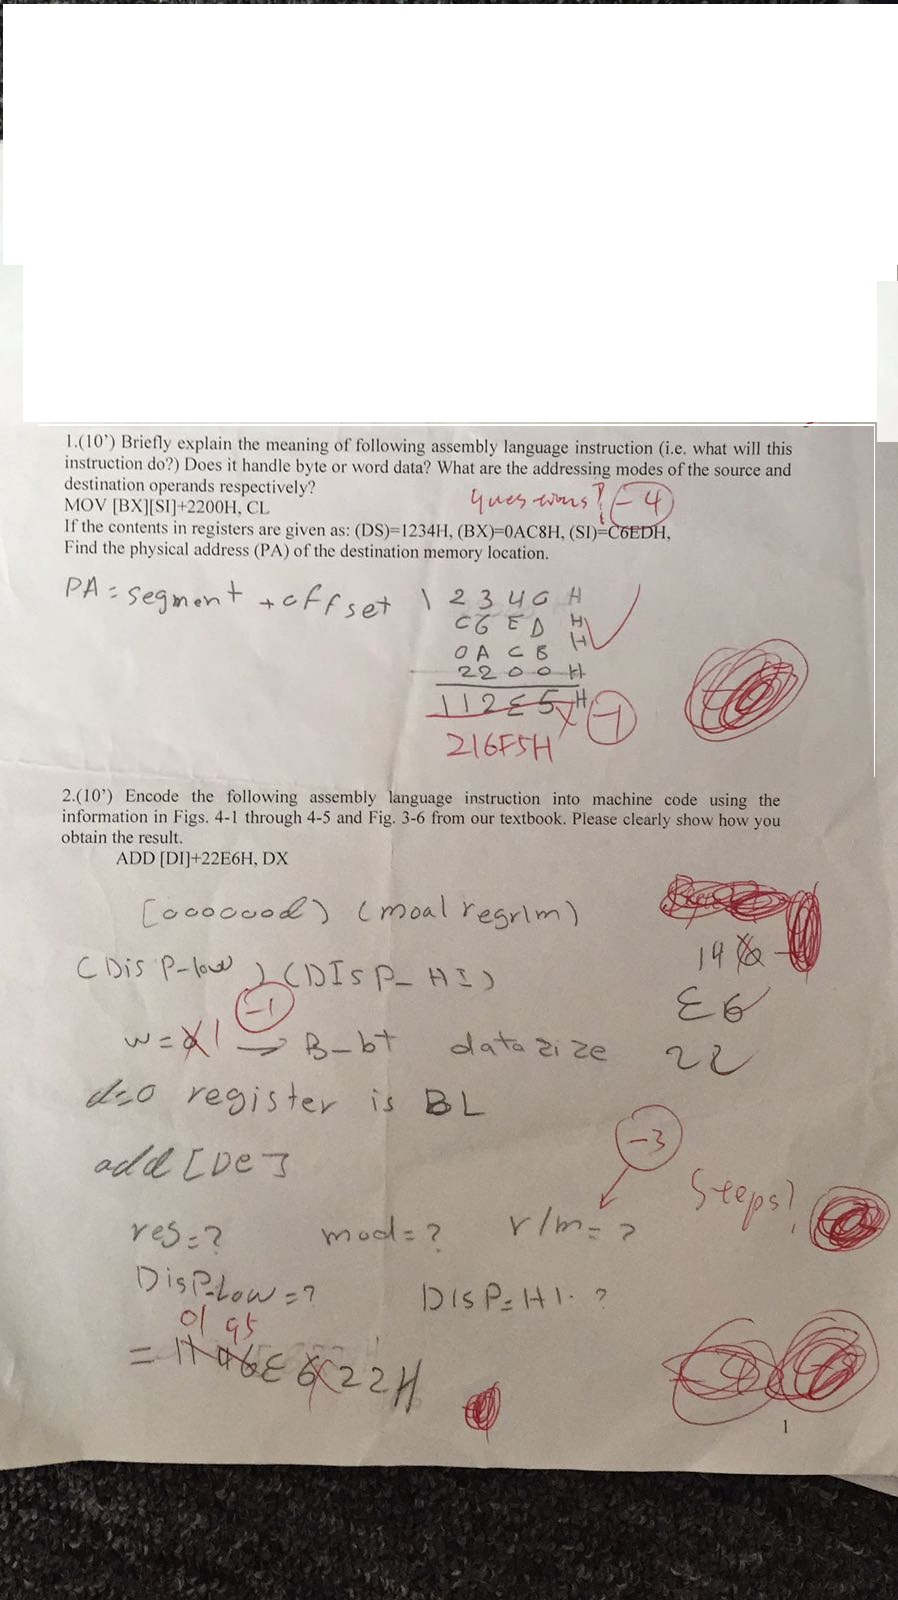 1.(10’) Briefly explain the meaning of following assembly language instruction (i.e. what will this
instruction do?) Does it handle byte or word data? What are the addressing modes of the source and
destination operands respectively?
questions? -4
MOV [BX][SI]+2200H, CL
If the contents in registers are given as: (DS)=1234H, (BX)=0AC8H, (SI)=C6EDH,
Find the physical address (PA) of the destination memory location.
PA = segment + offset 12340H
C6EDH
0AC8H
2200H
112E5H -1
216F5H
2.(10’) Encode the following assembly language instruction into machine code using the
information in Figs. 4-1 through 4-5 and Fig. 3-6 from our textbook. Please clearly show how you
obtain the result.
ADD [DI]+22E6H, DX
(000000d) (moal regr/m)
(Disp-low) (DISP_HI)
14
E6
22
-1
w = 1 → B-bt data size
d=0 register is BL
-3
add [De]
Steps?
res=? mod=? r/m=?
DisP-Low=? DISP=HI.?
01 95
= E6 22H
1